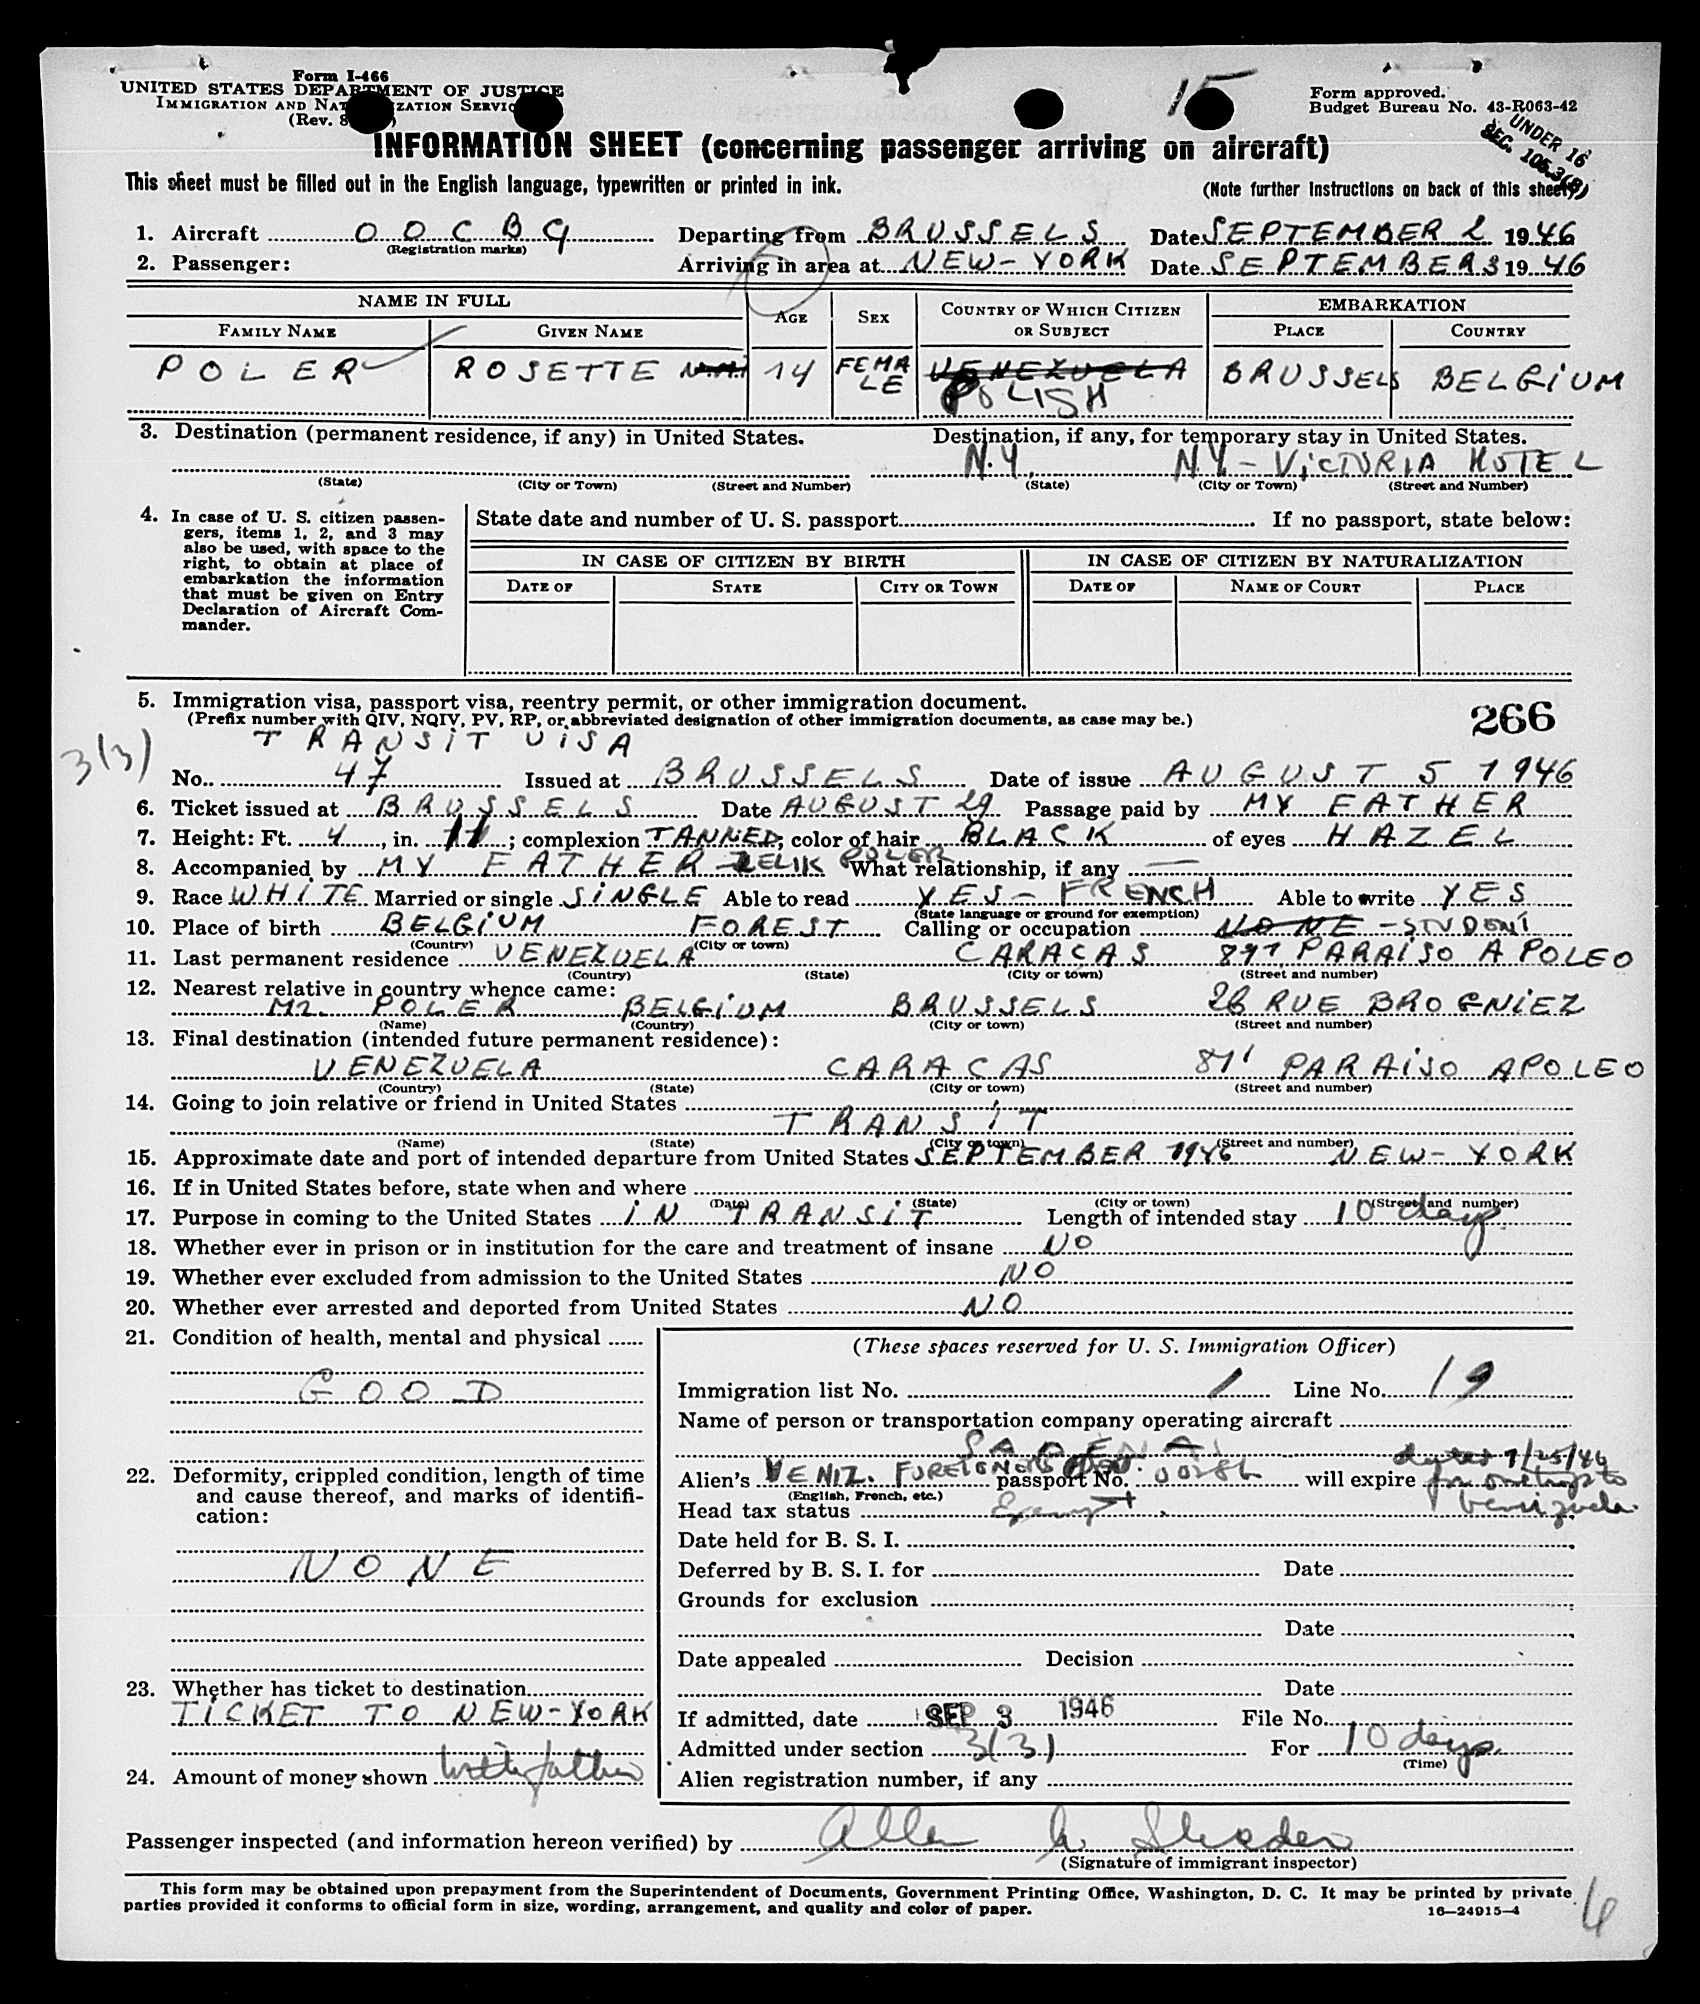 Form I-466
UNITED STATES DEPARTMENT OF JUSTICE
IMMIGRATION AND NAT ZATION SERVIC
(Rev. 8
15
Form approved.
Budget Bureau No. 43-R063-42
UNDER 16
SEC. 105.3(B)
INFORMATION SHEET (concerning passenger arriving on aircraft)
This sheet must be filled out in the English language, typewritten or printed in ink. (Note further instructions on back of this sheet)
1. Aircraft O O C B G Departing from BRUSSELS Date SEPTEMBER 2 1946
(Registration marks)
2. Passenger: Arriving in area at NEW-YORK Date SEPTEMBER 3 1946
NAME IN FULL AGE SEX COUNTRY OF WHICH CITIZEN OR SUBJECT EMBARKATION
FAMILY NAME GIVEN NAME PLACE COUNTRY
POLER ROSETTE 14 FEMALE VENEZUELA BRUSSELS BELGIUM
POLISH
3. Destination (permanent residence, if any) in United States. Destination, if any, for temporary stay in United States.
N.Y. N.Y. - VICTORIA HOTEL
(State) (City or Town) (Street and Number) (State) (City or Town) (Street and Number)
4. In case of U. S. citizen passen-
gers, items 1, 2, and 3 may
also be used, with space to the
right, to obtain at place of
embarkation the information
that must be given on Entry
Declaration of Aircraft Com-
mander.
State date and number of U. S. passport If no passport, state below:
IN CASE OF CITIZEN BY BIRTH IN CASE OF CITIZEN BY NATURALIZATION
DATE OF STATE CITY OR TOWN DATE OF NAME OF COURT PLACE
5. Immigration visa, passport visa, reentry permit, or other immigration document.
(Prefix number with QIV, NQIV, PV, RP, or abbreviated designation of other immigration documents, as case may be.)
266
TRANSIT VISA
3(3)
No. 47 Issued at BRUSSELS Date of issue AUGUST 5 1946
6. Ticket issued at BRUSSELS Date AUGUST 29 Passage paid by MY FATHER
7. Height: Ft. 4, in. 11; complexion TANNED; color of hair BLACK of eyes HAZEL
8. Accompanied by MY FATHER ZELIK POLER What relationship, if any —
9. Race WHITE Married or single SINGLE Able to read YES - FRENCH Able to write YES
(State language or ground for exemption)
10. Place of birth BELGIUM FOREST Calling or occupation NONE - STUDENT
(Country) (City or town)
11. Last permanent residence VENEZUELA CARACAS 871 PARAISO A POLEO
(Country) (State) (City or town) (Street and number)
12. Nearest relative in country whence came:
Mr. POLER BELGIUM BRUSSELS 26 RUE BROGNIEZ
(Name) (Country) (City or town) (Street and number)
13. Final destination (intended future permanent residence):
VENEZUELA CARACAS 871 PARAISO A POLEO
(Country) (State) (City or town) (Street and number)
14. Going to join relative or friend in United States
TRANSIT
(Name) (State) (City or town) (Street and number)
15. Approximate date and port of intended departure from United States SEPTEMBER 1946 NEW-YORK
16. If in United States before, state when and where
(Date) (State) (City or town) (Street and number)
17. Purpose in coming to the United States IN TRANSIT Length of intended stay 10 days
18. Whether ever in prison or in institution for the care and treatment of insane NO
19. Whether ever excluded from admission to the United States NO
20. Whether ever arrested and deported from United States NO
21. Condition of health, mental and physical
GOOD
22. Deformity, crippled condition, length of time
and cause thereof, and marks of identifi-
cation:
NONE
23. Whether has ticket to destination
TICKET TO NEW-YORK
24. Amount of money shown with father
(These spaces reserved for U. S. Immigration Officer)
Immigration list No. 1 Line No. 19
Name of person or transportation company operating aircraft
SABENA
Alien's VENIZ. FOREIGNERS passport No. 00286 will expire dated 7/25/46
for one trip to
Venizuela.
(English, French, etc.)
Head tax status Exempt
Date held for B. S. I.
Deferred by B. S. I. for Date
Grounds for exclusion
Date
Date appealed Decision
Date
If admitted, date SEP 3 1946 File No.
Admitted under section 3(3) For 10 days
(Time)
Alien registration number, if any
Passenger inspected (and information hereon verified) by
(Signature of immigrant inspector)
This form may be obtained upon prepayment from the Superintendent of Documents, Government Printing Office, Washington, D. C. It may be printed by private
parties provided it conforms to official form in size, wording, arrangement, and quality and color of paper.
16—24915-4